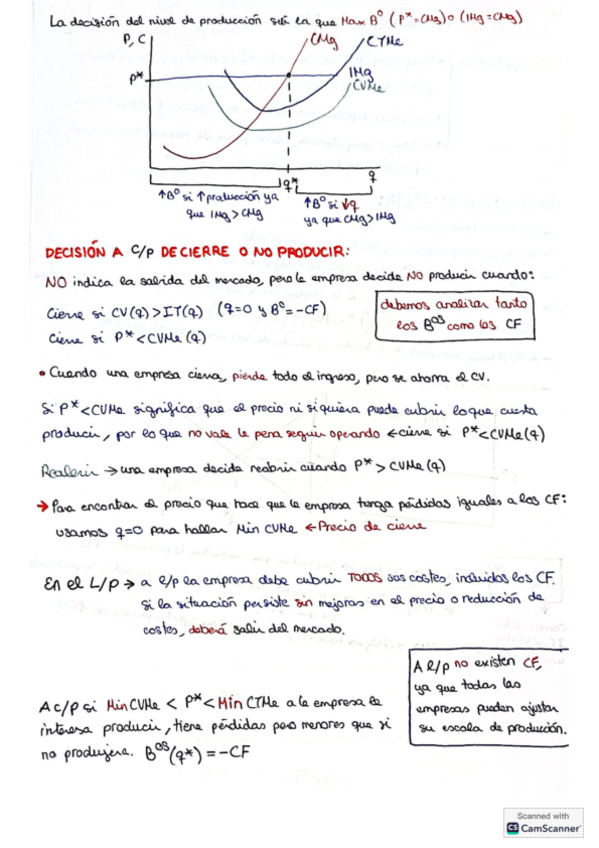 La decisión del nivel de producción será la que Max Bº (P*=CMg) o (IMg=CMg)
P, C
CMg
CTMe
P*
IMg
CVMe
q*
q
↑Bº si ↑producción ya
que IMg > CMg
↑Bº si ↓q
ya que CMg > IMg
DECISIÓN A C/P DE CIERRE O NO PRODUCIR:
NO indica la salida del mercado, pero la empresa decide NO producir cuando:
Cierre si CV(q) > IT(q) (q=0 y Bº=-CF)
Cierre si P* < CVMe(q)
debemos analizar tanto
los Bºˢ como los CF
• Cuando una empresa cierra, pierde todo el ingreso, pero se ahorra el CV.
Si P* < CVMe significa que el precio ni siquiera puede cubrir lo que cuesta
producir, por lo que no vale la pena seguir operando ← cierre si P* < CVMe(q)
Reabrir → una empresa decide reabrir cuando P* > CVMe(q)
→ Para encontrar el precio que hace que la empresa tenga pérdidas iguales a los CF:
usamos q=0 para hallar Min CVMe ← Precio de cierre
En el L/P → a l/p la empresa debe cubrir TODOS sus costes, incluidos los CF.
Si la situación persiste sin mejoras en el precio o reducción de
costes, deberá salir del mercado.
A l/p no existen CF,
ya que todas las
empresas pueden ajustar
su escala de producción.
A C/P si Min CVMe < P* < Min CTMe a la empresa le
interesa producir, tiene pérdidas pero menores que si
no produjera. Bºˢ(q*) = -CF
Scanned with
CS CamScanner